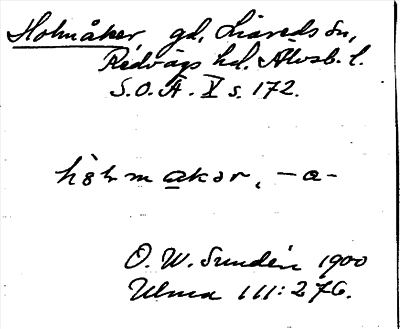 Holmåker, gd, Liareds sn,
Redvägs hd. Älvsb. l.
S.O.Ä. X s. 172.
makar, -a-
O. W. Sundén 1900
Ulma 111:276.